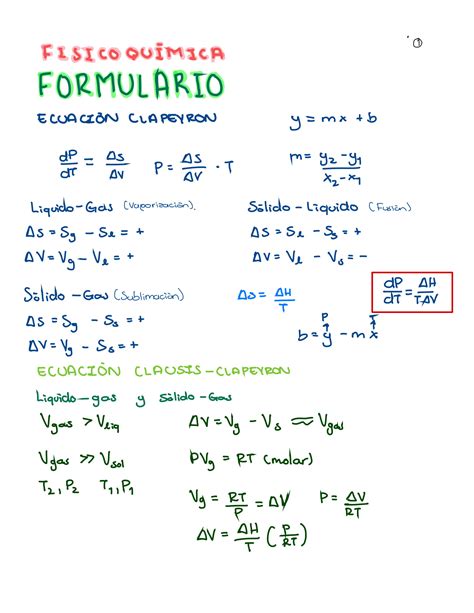 ①
FISICOQUÍMICA
FORMULARIO
ECUACIÓN CLAPEYRON
y = mx + b
dP/dT = ΔS/ΔV   P = ΔS/ΔV · T
m = y₂ - y₁ / x₂ - x₁
Liquido - Gas (Vaporización).
ΔS = Sg - Sℓ = +
ΔV = Vg - Vℓ = +
Sólido - Liquido (Fusión)
ΔS = Sℓ - Ss = +
ΔV = Vℓ - Vs = -
Sólido - Gas (Sublimación)
ΔS = Sg - Ss = +
ΔV = Vg - Ss = +
ΔS = ΔH/T
dP/dT = ΔH/T,ΔV
P T
b = y - mx
ECUACIÓN CLAUSIS - CLAPEYRON
Liquido - gas y Sólido - Gas
Vgas > Vliq
ΔV = Vg - Vs ≈ Vgas
Vgas >> Vsol
PVg = RT (molar)
T₂, P₂ T₁, P₁
Vg = RT/P = ΔV   P = ΔV/RT
ΔV = ΔH/T (P/RT)